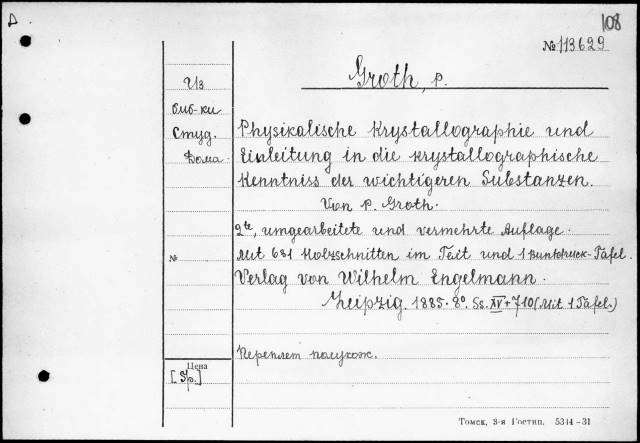 108
№ 113629
Groth, P.
Из
биб-ки
Студ.
Дома.
Physikalische Krystallographie und
Einleitung in die krystallographische
Kenntniss der wichtigeren Substanzen.
Von P. Groth.
2te, umgearbeitete und vermehrte Auflage.
Mit 631 Holzschnitten im Text und 1 Buntdruck-Tafel.
№
Verlag von Wilhelm Engelmann.
Leipzig. 1885. 8°. Ss. XV+710 (Mit 1 Tafel.)
Переплет полукож.
Цена
Томск, 3-я Гостип. 5314-31